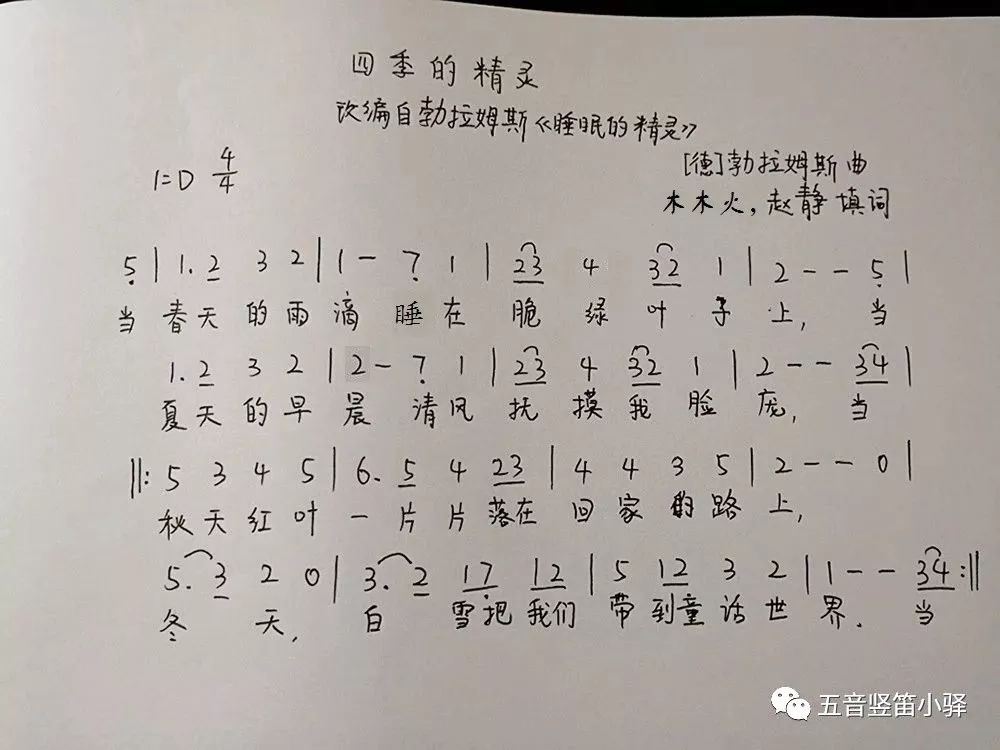 四季的精灵
改编自勃拉姆斯《睡眠的精灵》
1=D 4/4
[德]勃拉姆斯 曲
木木火,赵静 填词
5̣ | 1. 2 3 2 | 1 - 7̣ 1 | 23 4 32 1 | 2 - - 5̣ |
当 春天 的 雨 滴 睡 在 脆 绿 叶 子 上, 当
1. 2 3 2 | 2 - 7̣ 1 | 23 4 32 1 | 2 - - 34 |
夏天 的 早 晨 清 风 抚 摸 我 脸 庞, 当
‖: 5 3 4 5 | 6. 5 4 23 | 4 4 3 5 | 2 - - 0 |
秋 天 红 叶 一 片 片 落在 回 家 的 路 上,
5. 3 2 0 | 3. 2 17̣ 12 | 5 12 3 2 | 1 - - 34 :‖
冬 天, 白 雪把 我们 带 到童 话 世 界. 当
五音竖笛小驿